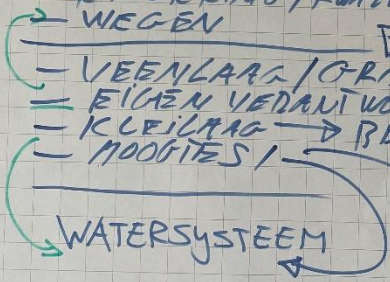 - WEGEN
- VEENLAAG / GR
- EIGEN VERANTWO
- KLEILAAG → B
- HOOGTES /
WATERSYSTEEM